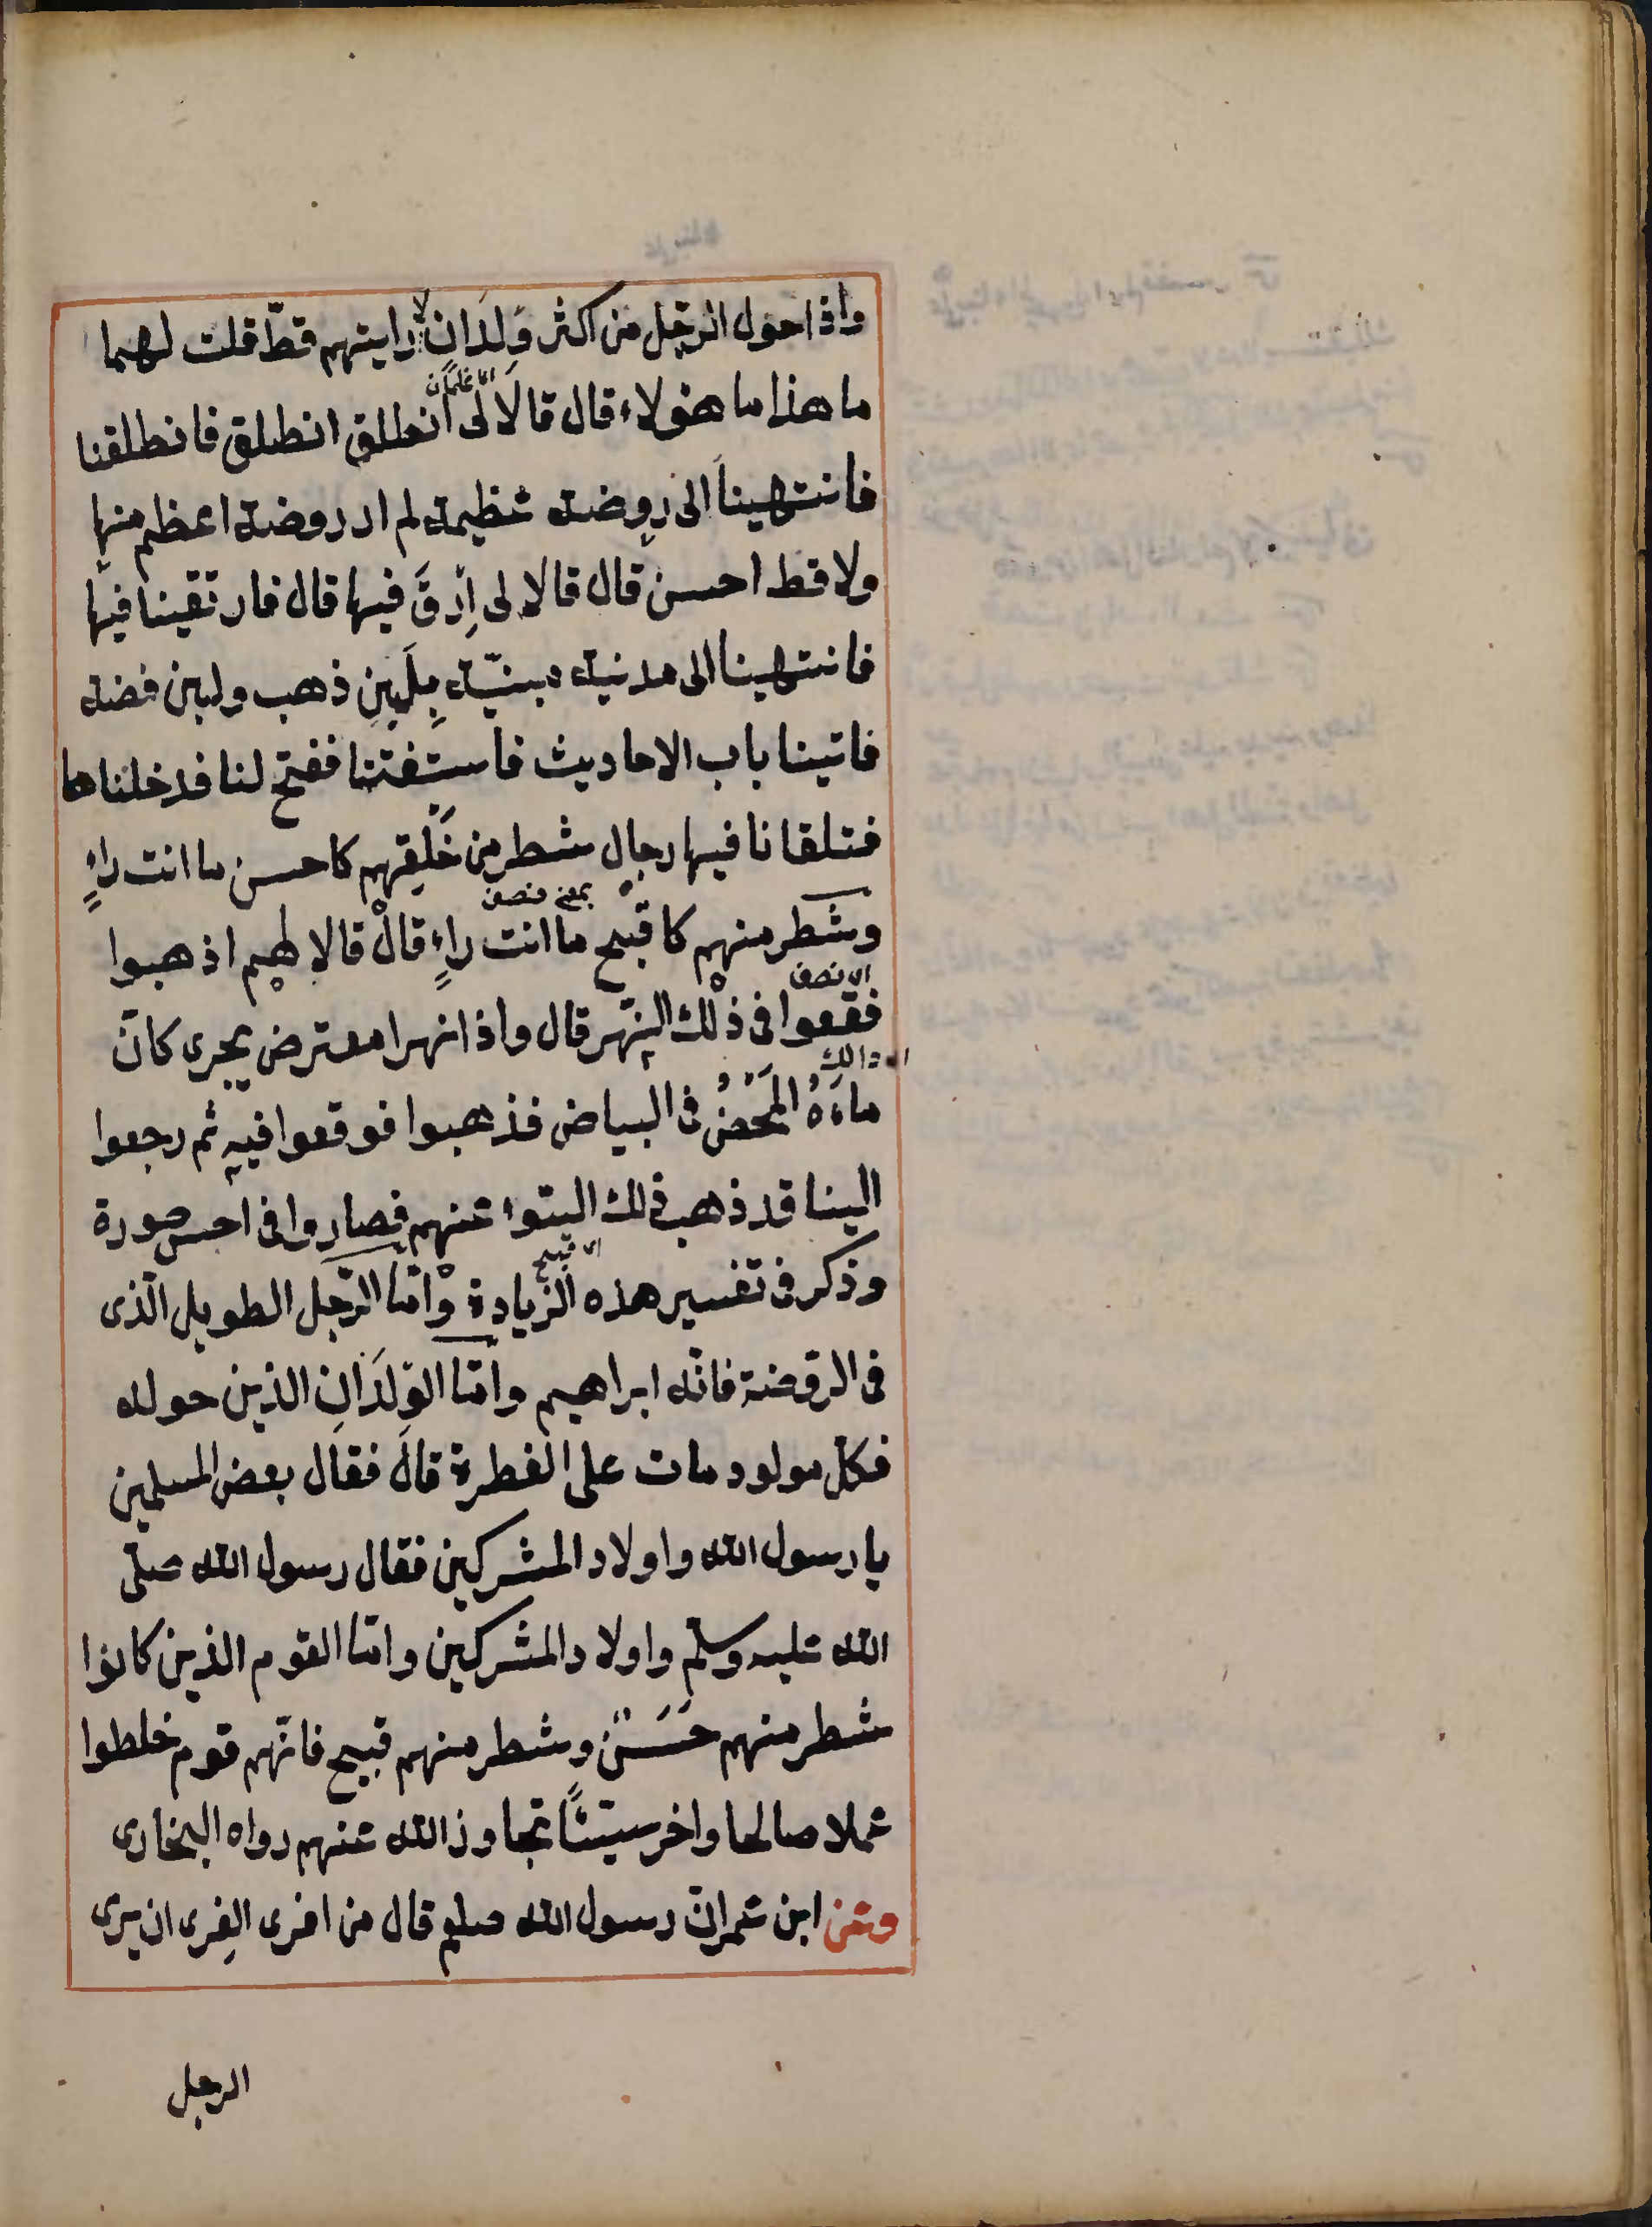 واذا حول الرجل من اكثر ولدان رايتهم قطّ قلت لهما
اى غلمان
ما هذا ما هؤلاء قال قالا لى انطلق انطلق فانطلقنا
فانتهينا الى روضة عظيمة لم ار روضة اعظم منها
ولا قط احسن قال قالا لى اِرْقَ فيها قال فارتقينا فيها
فانتهينا الى مدنية مبنيّة بِلَبِنِ ذهب ولبن فضة
فاتينا باب الاحاديث فاستفتنا ففتح لنا فدخلناها
فتلقانا فيها رجال شطر من خَلْقِهم كاحسن ما انت راءٍ
بمعنى نصف
وشطر منهم كاقبح ما انت راءٍ قال قالا لهم اذهبوا
اى نصف
فقعوا فى ذلك النهر قال واذا نهرا معترض يجرى كانّ
ماءَهُ المَحْضُ فى البياض فذهبوا فوقعوا فيه ثم رجعوا
الينا قد ذهب ذلك السّوء عنهم فصاروا فى احسن صورة
اى قبيح
وذكر فى تفسير هذه الزيادة وامّا الرّجل الطويل الّذى
فى الروضة فانّه ابراهيم وامّا الوِلدَانِ الذين حوله
فكلّ مولود مات على الفطرة قال فقال بعض المسلمين
يا رسول الله واولاد المشركين فقال رسول الله صلى
الله عليه وسلّم واولاد المشركين وامّا القوم الذين كانوا
شطر منهم حَسَنٌ وشطر منهم قبيح فانّهم قوم خلطوا
عملا صالحا واخر سيّئًا تجاوز الله عنهم رواه البخارى
وعن ابن عمران رسول الله صلعم قال من افرى الفِرى ان يرى
الرجل